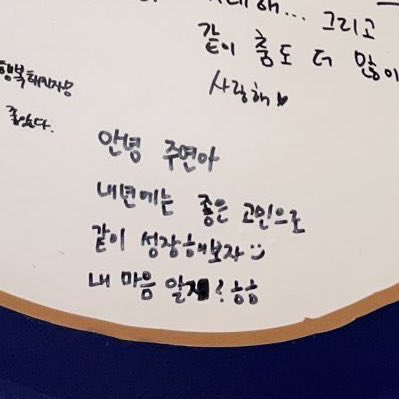 해... 그리고
같이 춤도 더 많이
사랑해♥
좋았다.
안녕 주연아
내년에는 좋은 고인으로
같이 성장해보자 :)
내 마음 알지? ㅎㅎ